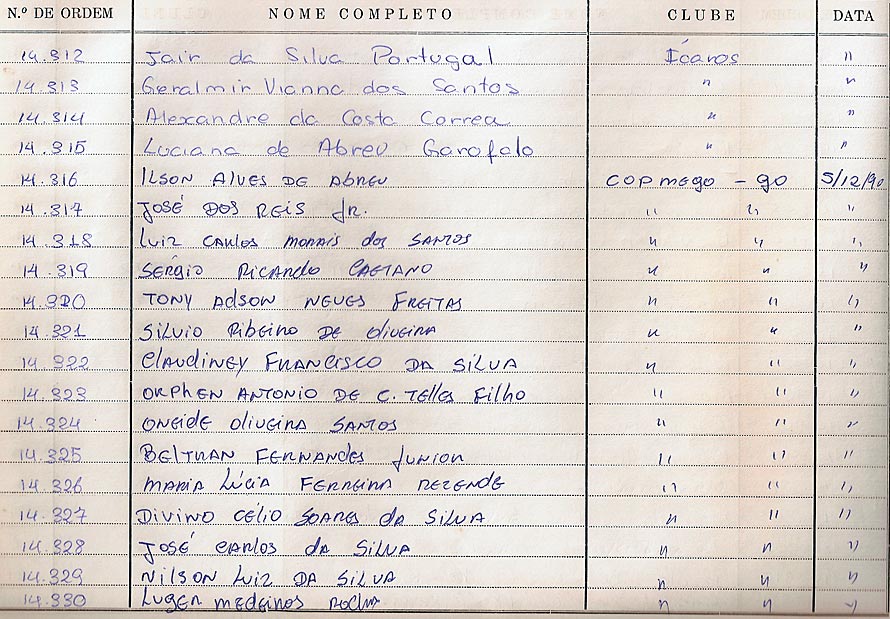 N.º DE ORDEM NOME COMPLETO CLUBE DATA
14.312 Jair da Silva Portugal Icaros "
14.313 Geralmir Vianna dos Santos " "
14.314 Alexandre da Costa Correa " "
14.315 Luciana de Abreu Garofalo " "
14.316 ILSON ALVES DE ABREU COPMEGO - GO 5/12/90
14.317 JOSÉ DOS REIS JR. " " "
14.318 LUIZ CARLOS MORAIS dos SANTOS " " "
14.319 SÉRGIO RICARDO CAETANO " " "
14.320 TONY ADSON NEVES FREITAS " " "
14.321 SILVIO RIBEIRO DE OLIVEIRA " " "
14.322 CLAUDINEY FRANCISCO DA SILVA " " "
14.323 ORPHEN ANTONIO DE C. TELLES FILHO " " "
14.324 ONEIDE OLIVEIRA SANTOS " " "
14.325 BELTRAN FERNANDES JUNIOR " " "
14.326 MARIA LÚCIA FERREIRA REZENDE " " "
14.327 DIVINO CÉLIO SOARES da SILVA " " "
14.328 JOSÉ CARLOS da SILVA " " "
14.329 NILSON LUIZ DA SILVA " " "
14.330 LUGER MEDEIROS ROCHA " " "